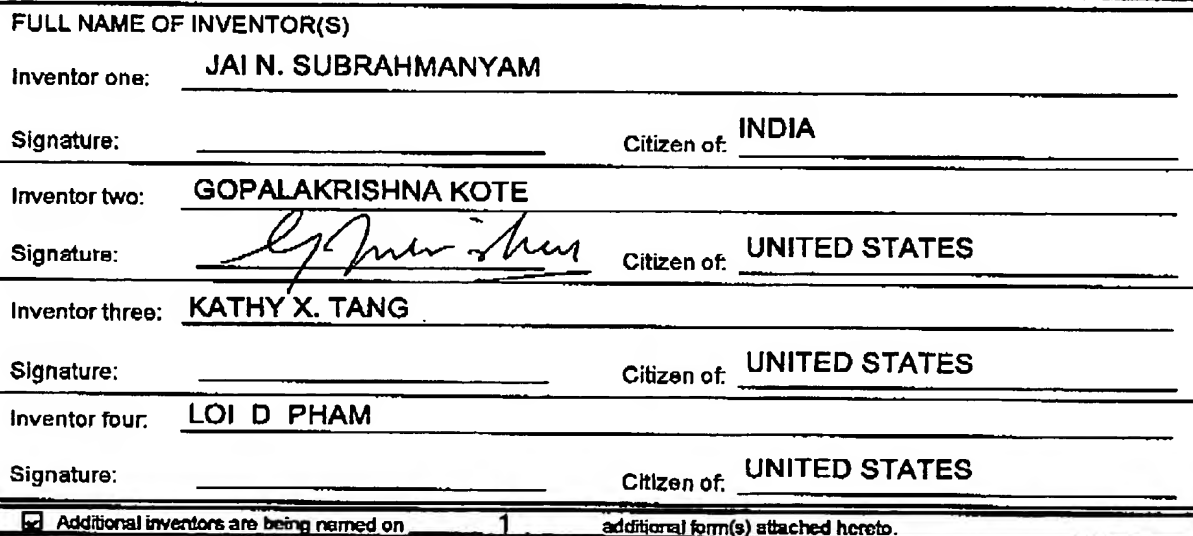 FULL NAME OF INVENTOR(S)
Inventor one: JAI N. SUBRAHMANYAM
Signature: Citizen of: INDIA
Inventor two: GOPALAKRISHNA KOTE
Signature: Citizen of: UNITED STATES
Inventor three: KATHY X. TANG
Signature: Citizen of: UNITED STATES
Inventor four: LOI D PHAM
Signature: Citizen of: UNITED STATES
Additional inventors are being named on 1 additional form(s) attached hereto.